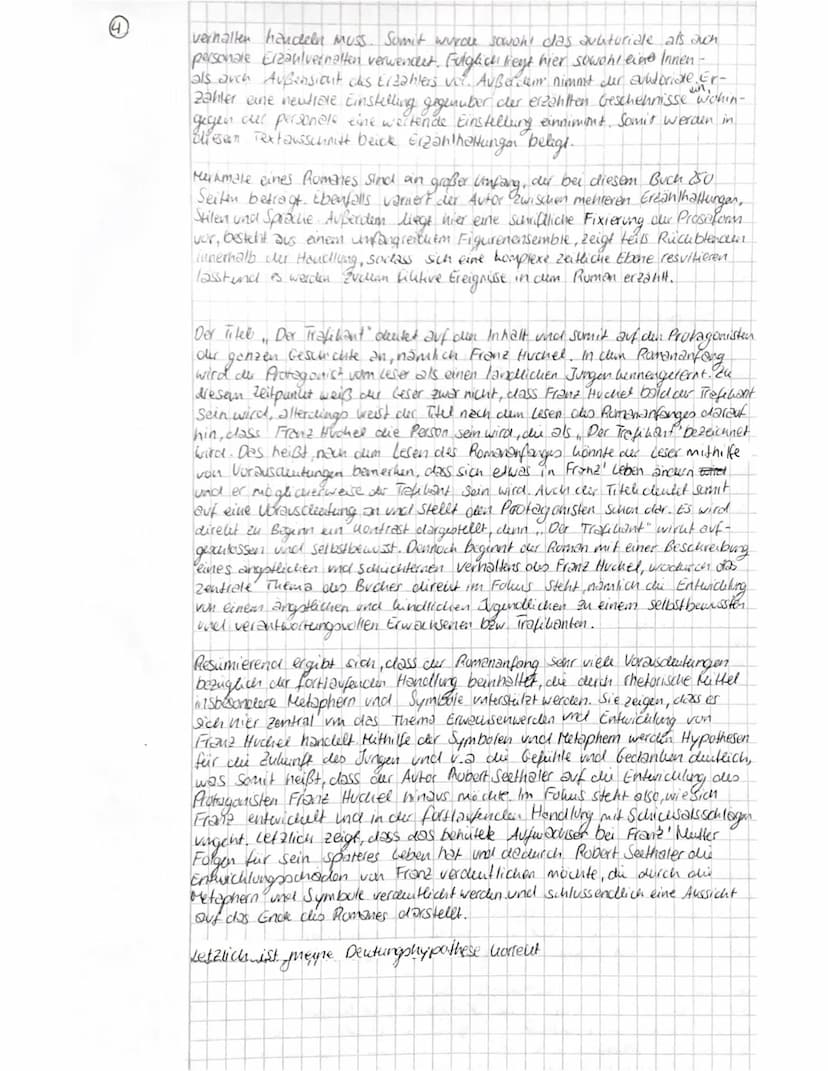 4
verhalten handeln muss. Somit wurde sowohl das auktoriale als auch
personale Erzählverhalten verwendet. Folglich liegt hier sowohl eine Innen-
als auch Außensicht des Erzählers vor. Außerdem nimmt der auktoriale Er-
zähler eine neutrale Einstellung gegenüber der erzählten Geschehnisse ein, wohin-
gegen der personale eine wertende Einstellung einnimmt. Somit werden in
diesem Textausschnitt beide Erzählhaltungen belegt.
Merkmale eines Romanes sind ein großer Umfang, der bei diesem Buch 250
Seiten beträgt. Ebenfalls variiert der Autor zwischen mehreren Erzählhaltungen,
Stilen und Sprache. Außerdem liegt hier eine schriftliche Fixierung der Prosaform
vor, besteht aus einem umfangreichem Figurenensemble, zeigt teils Rückblenden
innerhalb der Handlung, sodass sich eine komplexe zeitliche Ebene resultieren
lässt und es werden zudem fiktive Ereignisse in dem Roman erzählt.
Der Titel „Der Trafikant" deutet auf den Inhalt und somit auf den Protagonisten
der ganzen Geschichte an, nämlich Franz Huchel. In dem Romananfang
wird der Protagonist vom Leser als einen ländlichen Jungen kennengelernt. Zu
diesem Zeitpunkt weiß der Leser zwar nicht, dass Franz Huchel bald der Trafikant
sein wird, allerdings weist der Titel nach dem Lesen des Romananfanges darauf
hin, dass Franz Huchel die Person sein wird, die als „Der Trafikant" bezeichnet
wird. Das heißt, nach dem Lesen des Romananfangs könnte der Leser mithilfe
von Vorausdeutungen bemerken, dass sich etwas in Franz' Leben ändern
und er möglicherweise der Trafikant sein wird. Auch der Titel deutet somit
auf eine Vorausdeutung an und stellt den Protagonisten schon dar. Es wird
direkt zu Beginn ein Kontrast dargestellt, denn „Der Trafikant" wirkt auf-
geschlossen und selbstbewusst. Dennoch beginnt der Roman mit einer Beschreibung
eines ängstlichen und schüchternen Verhaltens des Franz Huchel, wodurch das
zentrale Thema des Buches direkt im Fokus steht, nämlich die Entwicklung
von einem ängstlichen und kindlichen Jugendlichen zu einem selbstbewussten
und verantwortungsvollen Erwachsenen bzw. Trafikanten.
Resümierend ergibt sich, dass der Romananfang sehr viele Vorausdeutungen
bezüglich der fortlaufenden Handlung beinhaltet, die durch rhetorische Mittel
insbesondere Metaphern und Symbole unterstützt werden. Sie zeigen, dass es
sich hier zentral um das Thema Erwachsenwerden und Entwicklung von
Franz Huchel handelt. Mithilfe der Symbolen und Metaphern werden Hypothesen
für die Zukunft des Jungen und v.a die Gefühle und Gedanken deutlich,
was somit heißt, dass der Autor Robert Seethaler auf die Entwicklung des
Protagonisten Franz Huchel hinaus möchte. Im Fokus steht also, wie sich
Franz entwickelt und in der fortlaufenden Handlung mit Schicksalsschlägen
umgeht. Letzlich zeigt, dass das behütete Aufwachsen bei Franz' Mutter
Folgen für sein späteres Leben hat und dadurch Robert Seethaler die
Entwicklungsschäden von Franz verdeutlichen möchte, die durch die
Metaphern und Symbole verdeutlicht werden und schlussendlich eine Aussicht
auf das Ende des Romanes darstellt.
Letzlich ist meine Deutungshypothese korrekt